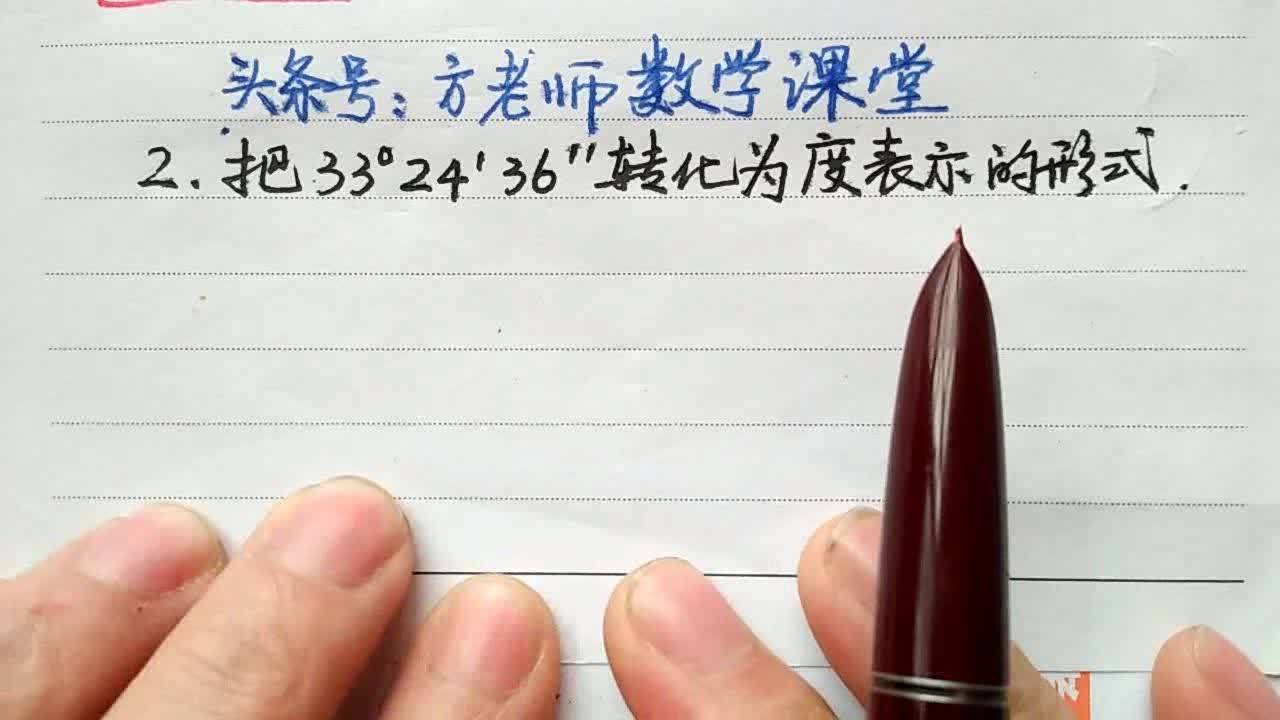 头条号：方老师数学课堂
2. 把33°24′36″转化为度表示的形式.